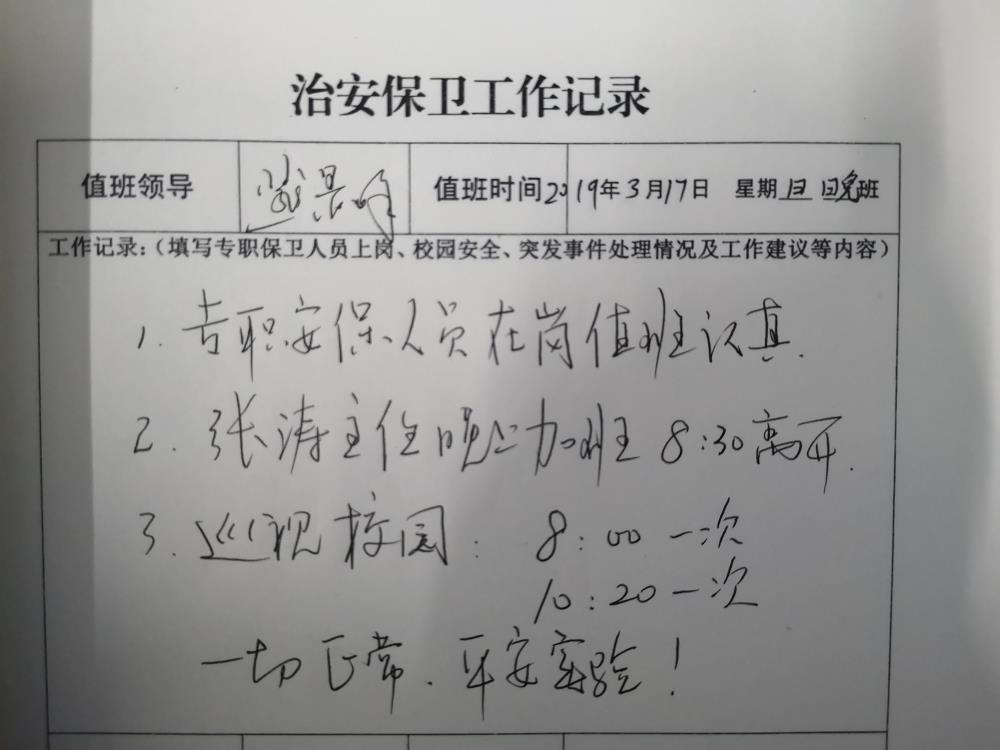 治安保卫工作记录
值班领导 值班时间2019年3月17日 星期日 晚班
工作记录：（填写专职保卫人员上岗、校园安全、突发事件处理情况及工作建议等内容）
1. 专职安保人员在岗值班认真.
2. 张涛主任晚上加班 8:30离开.
3. 巡视校园: 8:00 一次
10:20 一次
一切正常. 平安实验!